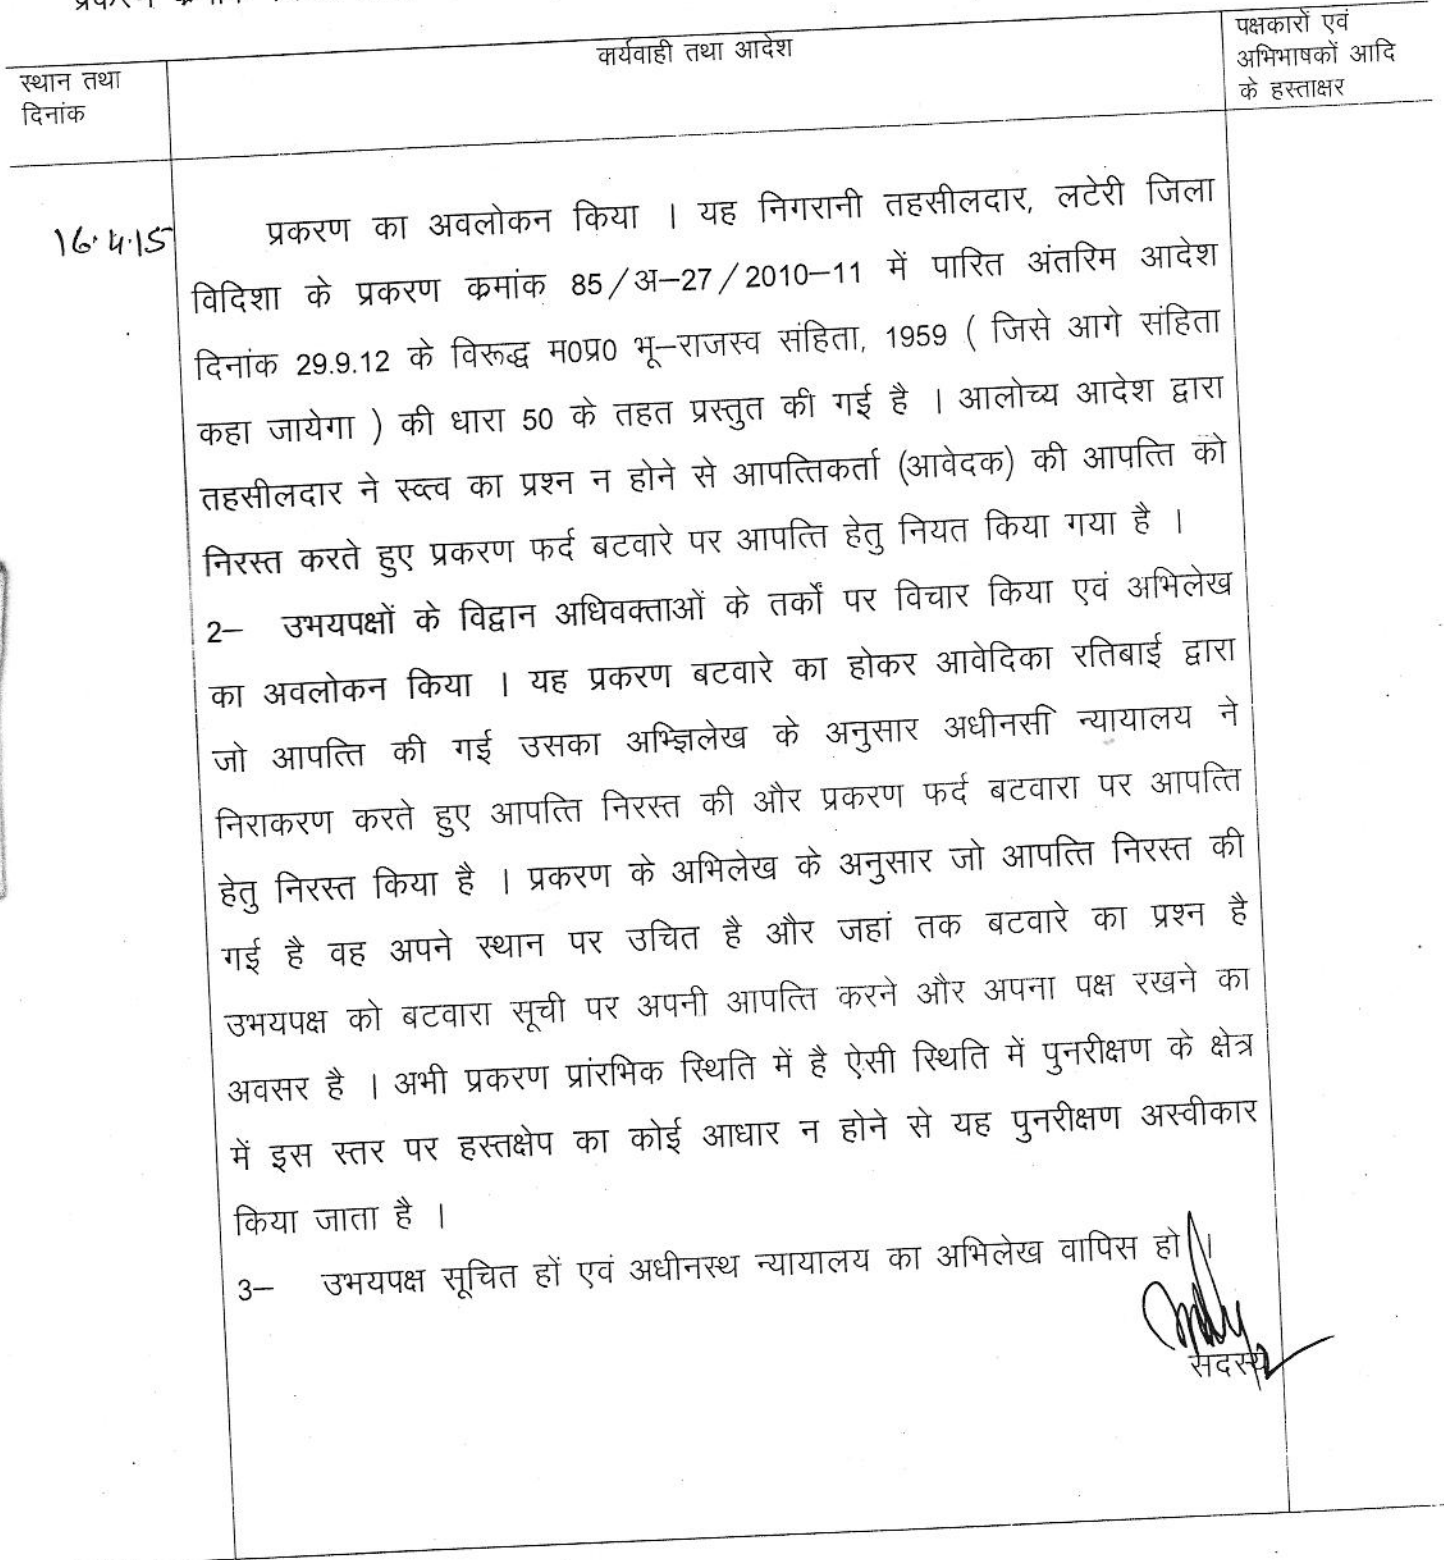 स्थान तथा
दिनांक
कार्यवाही तथा आदेश
पक्षकारों एवं
अभिभाषकों आदि
के हस्ताक्षर
16.4.15
प्रकरण का अवलोकन किया । यह निगरानी तहसीलदार, लटेरी जिला
विदिशा के प्रकरण क्रमांक 85/अ–27/2010–11 में पारित अंतरिम आदेश
दिनांक 29.9.12 के विरूद्ध म0प्र0 भू–राजस्व संहिता, 1959 ( जिसे आगे संहिता
कहा जायेगा ) की धारा 50 के तहत प्रस्तुत की गई है । आलोच्य आदेश द्वारा
तहसीलदार ने स्व्त्व का प्रश्न न होने से आपत्तिकर्ता (आवेदक) की आपत्ति को
निरस्त करते हुए प्रकरण फर्द बटवारे पर आपत्ति हेतु नियत किया गया है ।
2– उभयपक्षों के विद्वान अधिवक्ताओं के तर्कों पर विचार किया एवं अभिलेख
का अवलोकन किया । यह प्रकरण बटवारे का होकर आवेदिका रतिबाई द्वारा
जो आपत्ति की गई उसका अभ्झिलेख के अनुसार अधीनसी न्यायालय ने
निराकरण करते हुए आपत्ति निरस्त की और प्रकरण फर्द बटवारा पर आपत्ति
हेतु निरस्त किया है । प्रकरण के अभिलेख के अनुसार जो आपत्ति निरस्त की
गई है वह अपने स्थान पर उचित है और जहां तक बटवारे का प्रश्न है
उभयपक्ष को बटवारा सूची पर अपनी आपत्ति करने और अपना पक्ष रखने का
अवसर है । अभी प्रकरण प्रांरभिक स्थिति में है ऐसी स्थिति में पुनरीक्षण के क्षेत्र
में इस स्तर पर हस्तक्षेप का कोई आधार न होने से यह पुनरीक्षण अस्वीकार
किया जाता है ।
3– उभयपक्ष सूचित हों एवं अधीनस्थ न्यायालय का अभिलेख वापिस हो ।
सदस्य